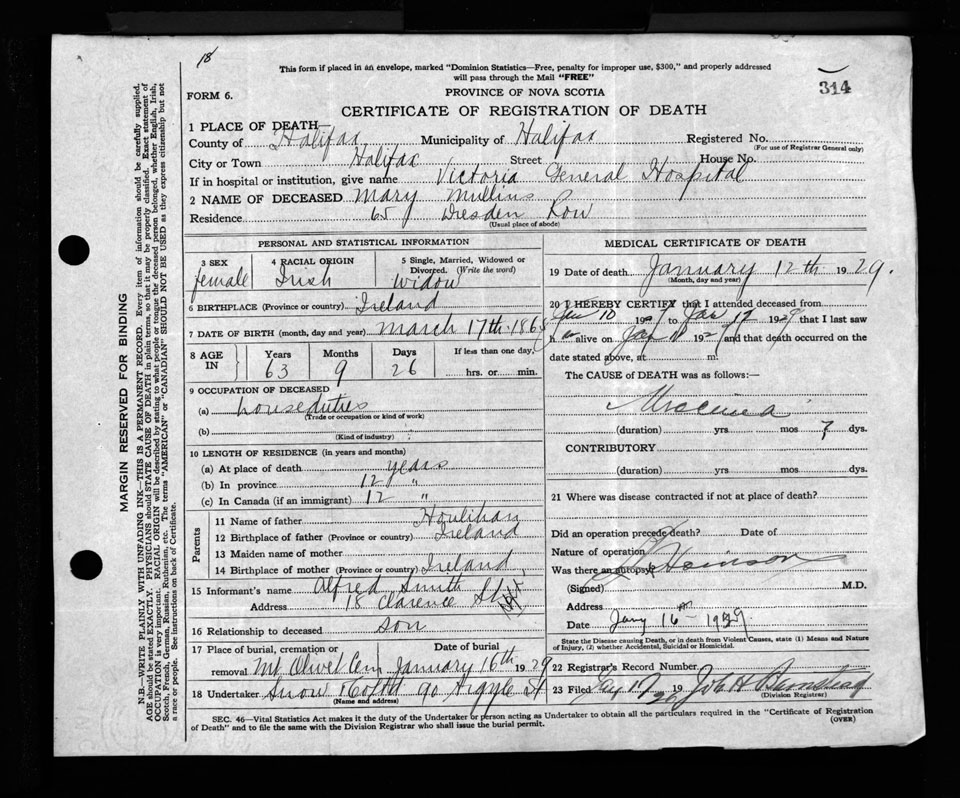 18
This form if placed in an envelope, marked "Dominion Statistics—Free, penalty for improper use, $300," and properly addressed
will pass through the Mail "FREE"
314
FORM 6.
PROVINCE OF NOVA SCOTIA
CERTIFICATE OF REGISTRATION OF DEATH
1 PLACE OF DEATH—
County of Halifax Municipality of Halifax Registered No.
(For use of Registrar General only)
City or Town Halifax Street House No.
If in hospital or institution, give name Victoria General Hospital
2 NAME OF DECEASED Mary Mullins
Residence 65 Dresden Row
(Usual place of abode)
PERSONAL AND STATISTICAL INFORMATION
3 SEX female
4 RACIAL ORIGIN Irish
5 Single, Married, Widowed or Divorced. (Write the word) Widow
6 BIRTHPLACE (Province or country) Ireland
7 DATE OF BIRTH (month, day and year) March 17th 1865
8 AGE IN Years Months Days If less than one day,
63 9 26 hrs. or min.
9 OCCUPATION OF DECEASED
(a) house duties
(Trade or occupation or kind of work)
(b)
(Kind of industry)
10 LENGTH OF RESIDENCE (in years and months)
(a) At place of death years
(b) In province 12 "
(c) In Canada (if an immigrant) 12 "
Parents
11 Name of father Houlihan
12 Birthplace of father (Province or country) Ireland
13 Maiden name of mother
14 Birthplace of mother (Province or country) Ireland
15 Informant's name Alfred Smith
Address 18 Clarence St
16 Relationship to deceased son
17 Place of burial, cremation or removal Date of burial
Mt Olivet Cem January 16th 1929
18 Undertaker Snow & Co Ltd 90 Argyle St
(Name and address)
MEDICAL CERTIFICATE OF DEATH
19 Date of death January 12th 1929.
(Month, day and year)
20 I HEREBY CERTIFY that I attended deceased from
Jan 10 1929 to Jan 12 1929 that I last saw
h er alive on Jan 11 1929 and that death occurred on the
date stated above, at m.
The CAUSE of DEATH was as follows:—
Uraemia
(duration) yrs mos 7 dys.
CONTRIBUTORY
(duration) yrs mos dys.
21 Where was disease contracted if not at place of death?
Did an operation precede death? Date of
Nature of operation
Was there an autopsy?
(Signed) M.D.
Address
Date Jany 16th 1929
State the Disease causing Death, or in death from Violent Causes, state (1) Means and Nature
of Injury, (2) whether Accidental, Suicidal or Homicidal.
22 Registrar's Record Number
23 Filed 17 19
(Division Registrar)
SEC. 46—Vital Statistics Act makes it the duty of the Undertaker or person acting as Undertaker to obtain all the particulars required in the "Certificate of Registration
of Death" and to file the same with the Division Registrar who shall issue the burial permit.
(OVER)
MARGIN RESERVED FOR BINDING
N.B.—WRITE PLAINLY WITH UNFADING INK—THIS IS A PERMANENT RECORD. Every item of information should be carefully supplied.
AGE should be stated EXACTLY. PHYSICIANS should STATE CAUSE OF DEATH in plain terms, so that it may be properly classified. Exact statement of
OCCUPATION is very important. RACIAL ORIGIN will be described by stating to what people or tongue the deceased person belonged, whether English, Irish,
Scotch, French, German, Russian, Ruthenian, etc. The terms "AMERICAN" or "CANADIAN" SHOULD NOT BE USED as they express citizenship but not
a race or people. See instructions on back of Certificate.